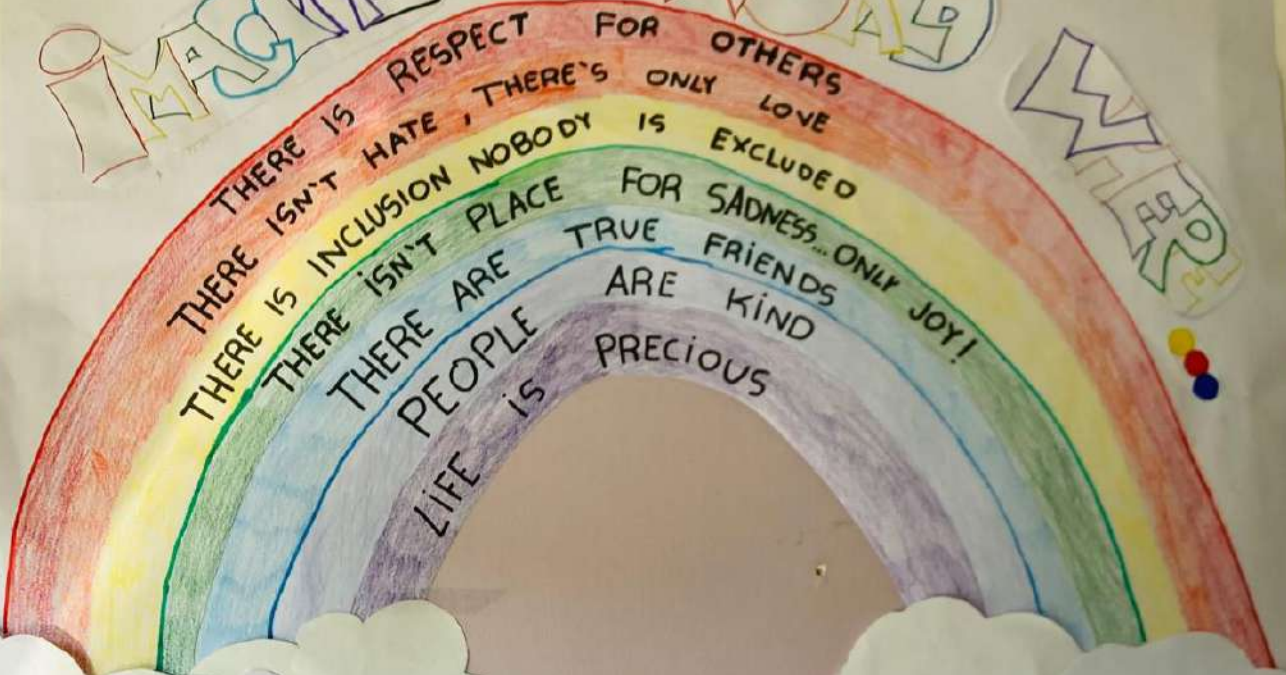 IMAGINE
ROAD
WHERE
THERE IS RESPECT FOR OTHERS
THERE ISN'T HATE, THERE'S ONLY LOVE
THERE IS INCLUSION NOBODY IS EXCLUDED
THERE ISN'T PLACE FOR SADNESS... ONLY JOY!
THERE ARE TRUE FRIENDS
PEOPLE ARE KIND
LIFE IS PRECIOUS